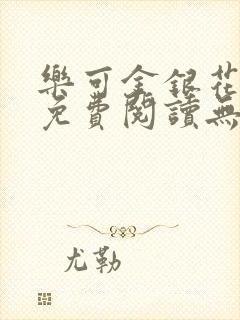 樂可金銀花
免費閱讀無
尤勒